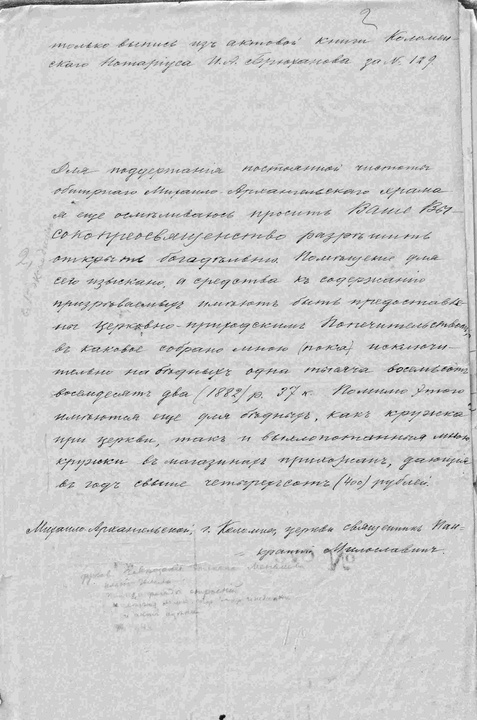 2
только выпись изъ актовой книги Коломен-
скаго Нотаріуса И.А. Брюханова за № 129.
Для поддержанія постоянной чистоты
обширнаго Михаило-Архангельскаго храма
я еще осмѣливаюсь просить Ваше Высо-
сокопреосвященство разрѣшить
открыть богадѣльни. Помѣщеніе для
сего изыскано, а средства къ содержанію
призрѣваемыхъ имѣютъ быть предоставле-
ны церковно-приходскимъ Попечительствомъ,
въ каковое собрано мною (пока) исключи-
тельно на бѣдныхъ одна тысяча восемьсотъ
восемдесятъ два (1882) р. 37 к. Помимо этого
имѣются еще для бѣдныхъ, какъ кружка
при церкви, такъ и выхлопотанныя мною
кружки въ магазинахъ прихожанъ, дающіе
въ годъ свыше четырехсотъ (400) рублей.
Михаило Архангельской, г. Коломны, церкви священникъ Пан-
кратій Милославинъ.